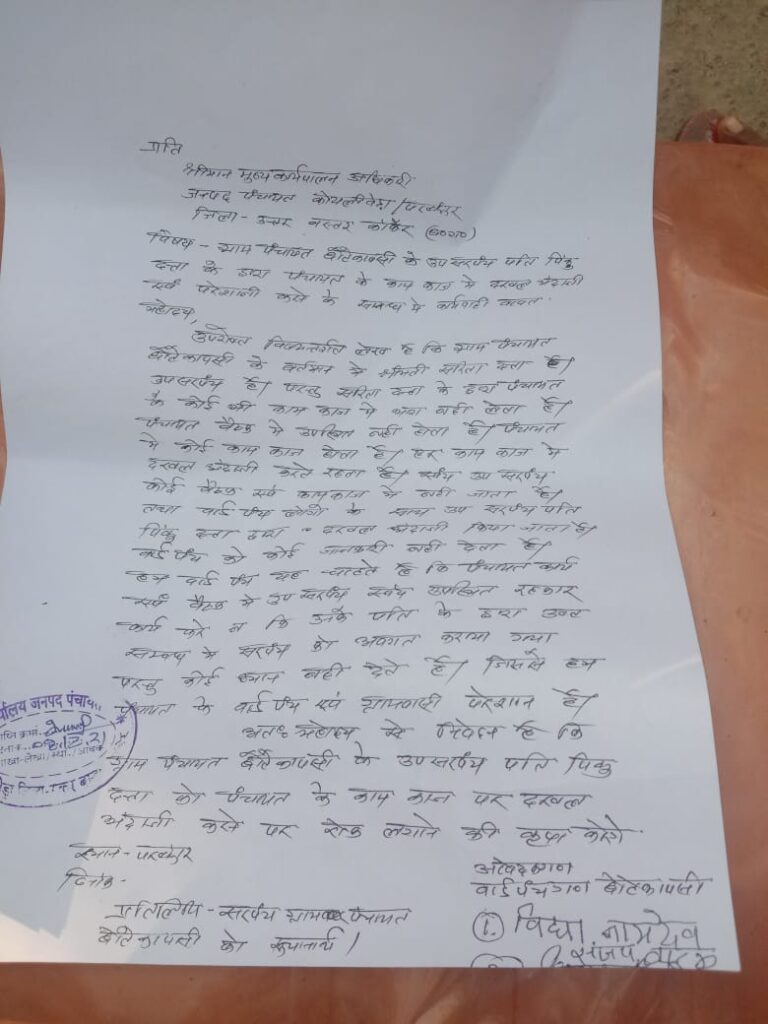 प्रति
श्रीमान मुख्य कार्यपालन अधिकारी
जनपद पंचायत कोयलीबेड़ा/पखांजूर
जिला - उत्तर बस्तर कांकेर (छ०ग०)
विषय - ग्राम पंचायत बैंठेकापसी के उप सरपंच पति पिंकु
दत्ता के द्वारा पंचायत के काम काज मे दखल अंदाजी
एवं परेशानी करने के सम्बन्ध मे कार्यवाही बाबत
महोदय,
उपरोक्त विषयान्तर्गत लेख है कि ग्राम पंचायत
बैंठेकापसी के वर्तमान मे श्रीमती सरिता दत्ता है।
उपसरपंच है। परन्तु सरिता दत्ता के द्वारा पंचायत
के कोई भी काम काज मे भाग नही लेता है।
पंचायत बैठक मे उपस्थित नही होता है। पंचायत
मे कोई काम काज होता है। हर काम काज मे
दखल अंदाजी करते रहता है। स्वयं उप सरपंच
कोई बैठक एवं कामकाज मे नही जाता है।
तथा वार्ड पंच लोगो के साथ उप सरपंच पति
पिंकु दत्ता द्वारा दखल अंदाजी किया जाता है।
वार्ड पंच को कोई जानकारी नही देता है।
हम वार्ड पंच यह चाहते है कि पंचायत कार्य
एवं बैठक मे उप सरपंच स्वयं उपस्थित रहकर
कार्य करे न कि उनके पति के द्वारा उक्त
सम्बन्ध मे सरपंच को अवगत कराया गया
परन्तु कोई ध्यान नही देते है। जिससे हम
पंचायत के वार्ड पंच एवं ग्रामवासी परेशान है।
अतः महोदय से निवेदन है कि
ग्राम पंचायत बैंठेकापसी के उप सरपंच पति पिंकु
दत्ता को पंचायत के काम काज पर दखल
अंदाजी करने पर रोक लगाने की कृपा करेंगे
स्थान - पखांजूर
दिनांक -
आवेदकगण
वार्ड पंचगण बैंठेकापसी
प्रतिलिपि - सरपंच ग्राम पंचायत
बैंठेकापसी को सूचनार्थ।
1. विद्या नामदेव
संजय
कार्यालय जनपद पंचायत